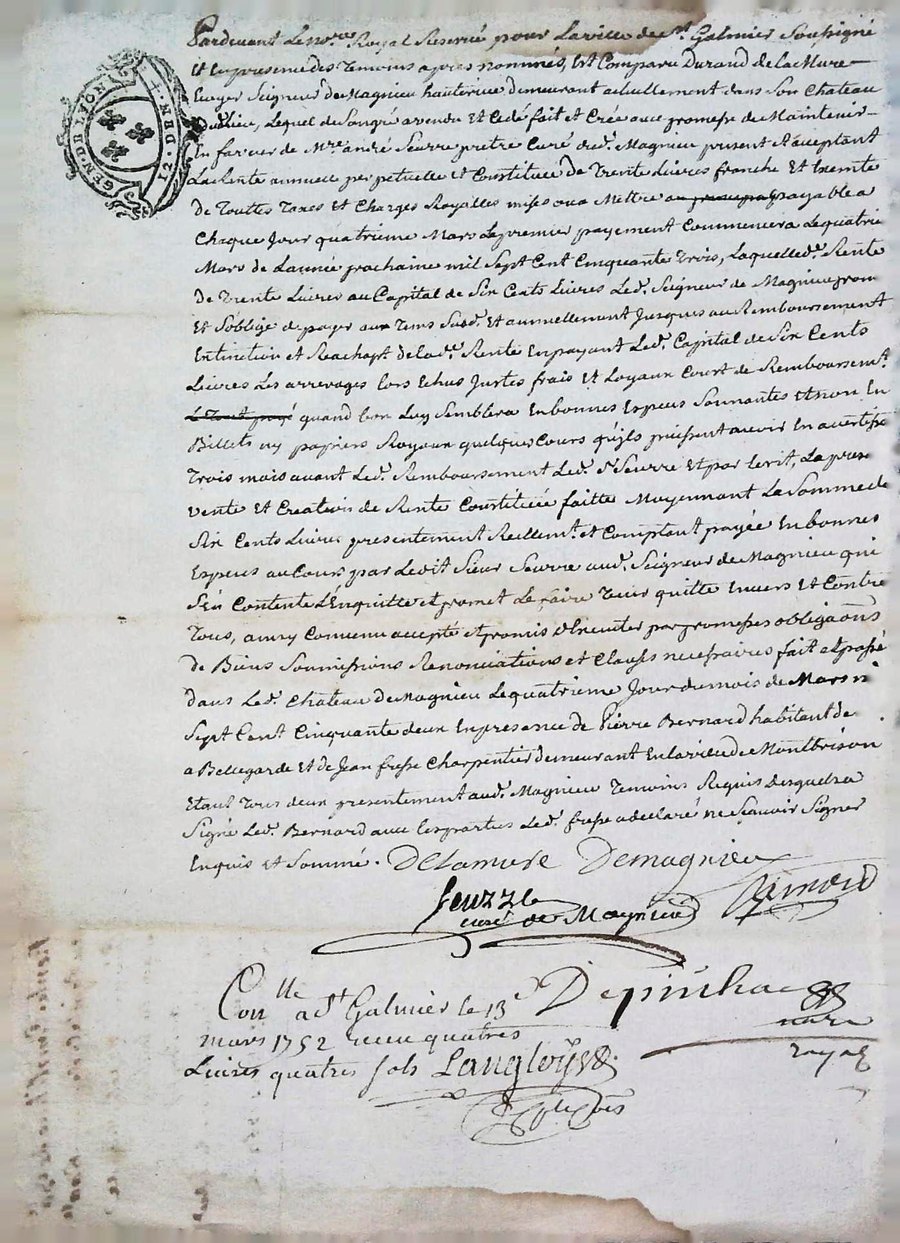 GEN · DE LYON
12 · DEN ·
Pardevant Le no.re Royal Reservé pour La ville de St. Galmier Soussigné
Et en presence des Temoins apres nommés, Est Comparu Durand de la Mure
Ecuyer Seigneur de Magnieu hauterive demeurant actuellement dans Son Chateau
dud. lieu, Lequel de Son gré a vendu Et Cedé fait et Créé avec promesse de Maintenir
En faveur de Mre. andré Seurre pretre Curé dud. Magnieu present Et acceptant
La Rente annuelle perpetuelle et Constituée de Trente Livres franche et Exemte
de Touttes Taxes et Charges Royalles mises ou a Mettre au principal payable a
Chaque Jour quatrieme Mars Le premier payement Commencera Le quatrie
Mars de L'année prochaine mil Sept Cent Cinquante Trois, Laquelle de. Rente
de Trente Livres au Capital de Six Cents Livres Led. Seigneur de Magnieu prom
Et S'oblige de payer aux Tems Susd. Et annuellement Jusques au Remboursement
Extinction et Reachapt de lad.e Rente En payant Led. Capital de Six Cents
Livres Les arrerages lors Echus Justes frais et Loyaux Court de Remboursemt.
Le Tout payé quand bon Luy Semblera En bonnes Especes Sonnantes Et non En
Billets ny papiers Royaux quelques Cours qu'ils puissent avoir En avertisst
Trois mois avant Led. Remboursement Led. Sr. Seurre Et par Ecrit, La pres
vente et Creation de Rente Constituée faitte Moyennant La Somme de
Six Cents Livres presentement Reellemt. et Comptant payée En bonnes
Especes au Cours par Ledit Sieur Seurre aud. Seigneur de Magnieu qui
S'en Contente L'En quitte et promet Le faire Tenir quitte Envers Et Contre
Tous, ainsy Convenu accepté et promis Executer par promesses obligaons
de Biens Soumissions Renonciations et Clauses necessaires fait et passé
dans Led. Chateau de Magnieu Le quatrieme Jour du mois de Mars mi
Sept Cent Cinquante deux En presence de Pierre Bernard habitant de
a Bellegarde Et de Jean Charpentier demeurant En la ville de Montbrison
Etant Tous deux presentement aud. Magnieu Temoins Requis desquels a
Signé Led. Bernard avec Les parties Led. a declaré ne Scavoir Signer
Enquis et Sommé.
Delamure Demagnieu
curé de Magnieu
Conlle a St Galmier le 13e
mars 1752 receu quatres
Livres quatres sols Langloys
nore
royal